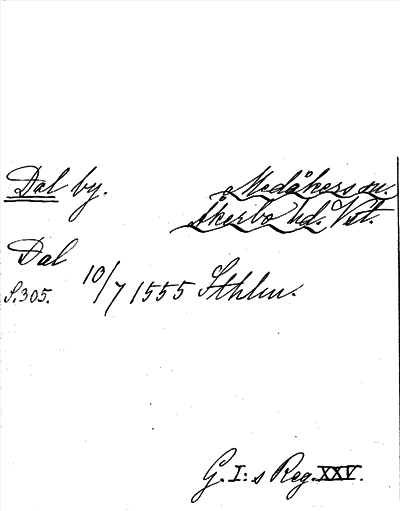 Dal by. Medåkers sn.
Åkerbo hd. Vst.
Dal
S. 305. 10/7 1555 Sthlm.
G. I:s Reg. XXV.